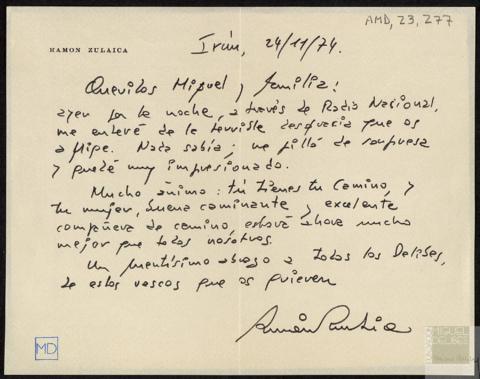 AMD, 23, 277
RAMON ZULAICA
Irún, 24/11/74.
Queridos Miguel y familia:
ayer por la noche, a través de Radio Nacional,
me enteré de la terrible desgracia que os
aflige. Nada sabía; me pilló de sorpresa
y quedé muy impresionado.
Mucho ánimo: tú tienes tu Camino, y
tu mujer, buena caminante y excelente
compañera de camino, estará ahora mucho
mejor que todos nosotros.
Un fuertísimo abrazo a todos los Delibes,
de estos vascos que os quieren
Ramón Zulaica
MD
MIGUEL
DELIBES